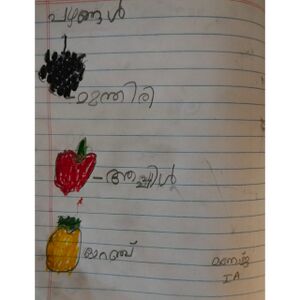 പഴങ്ങൾ
മുന്തിരി
ആപ്പിൾ
ഓറഞ്ച്
IA